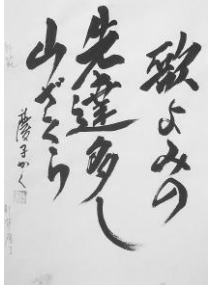 歌よみの
先達多し
山ざくら
慶子かく